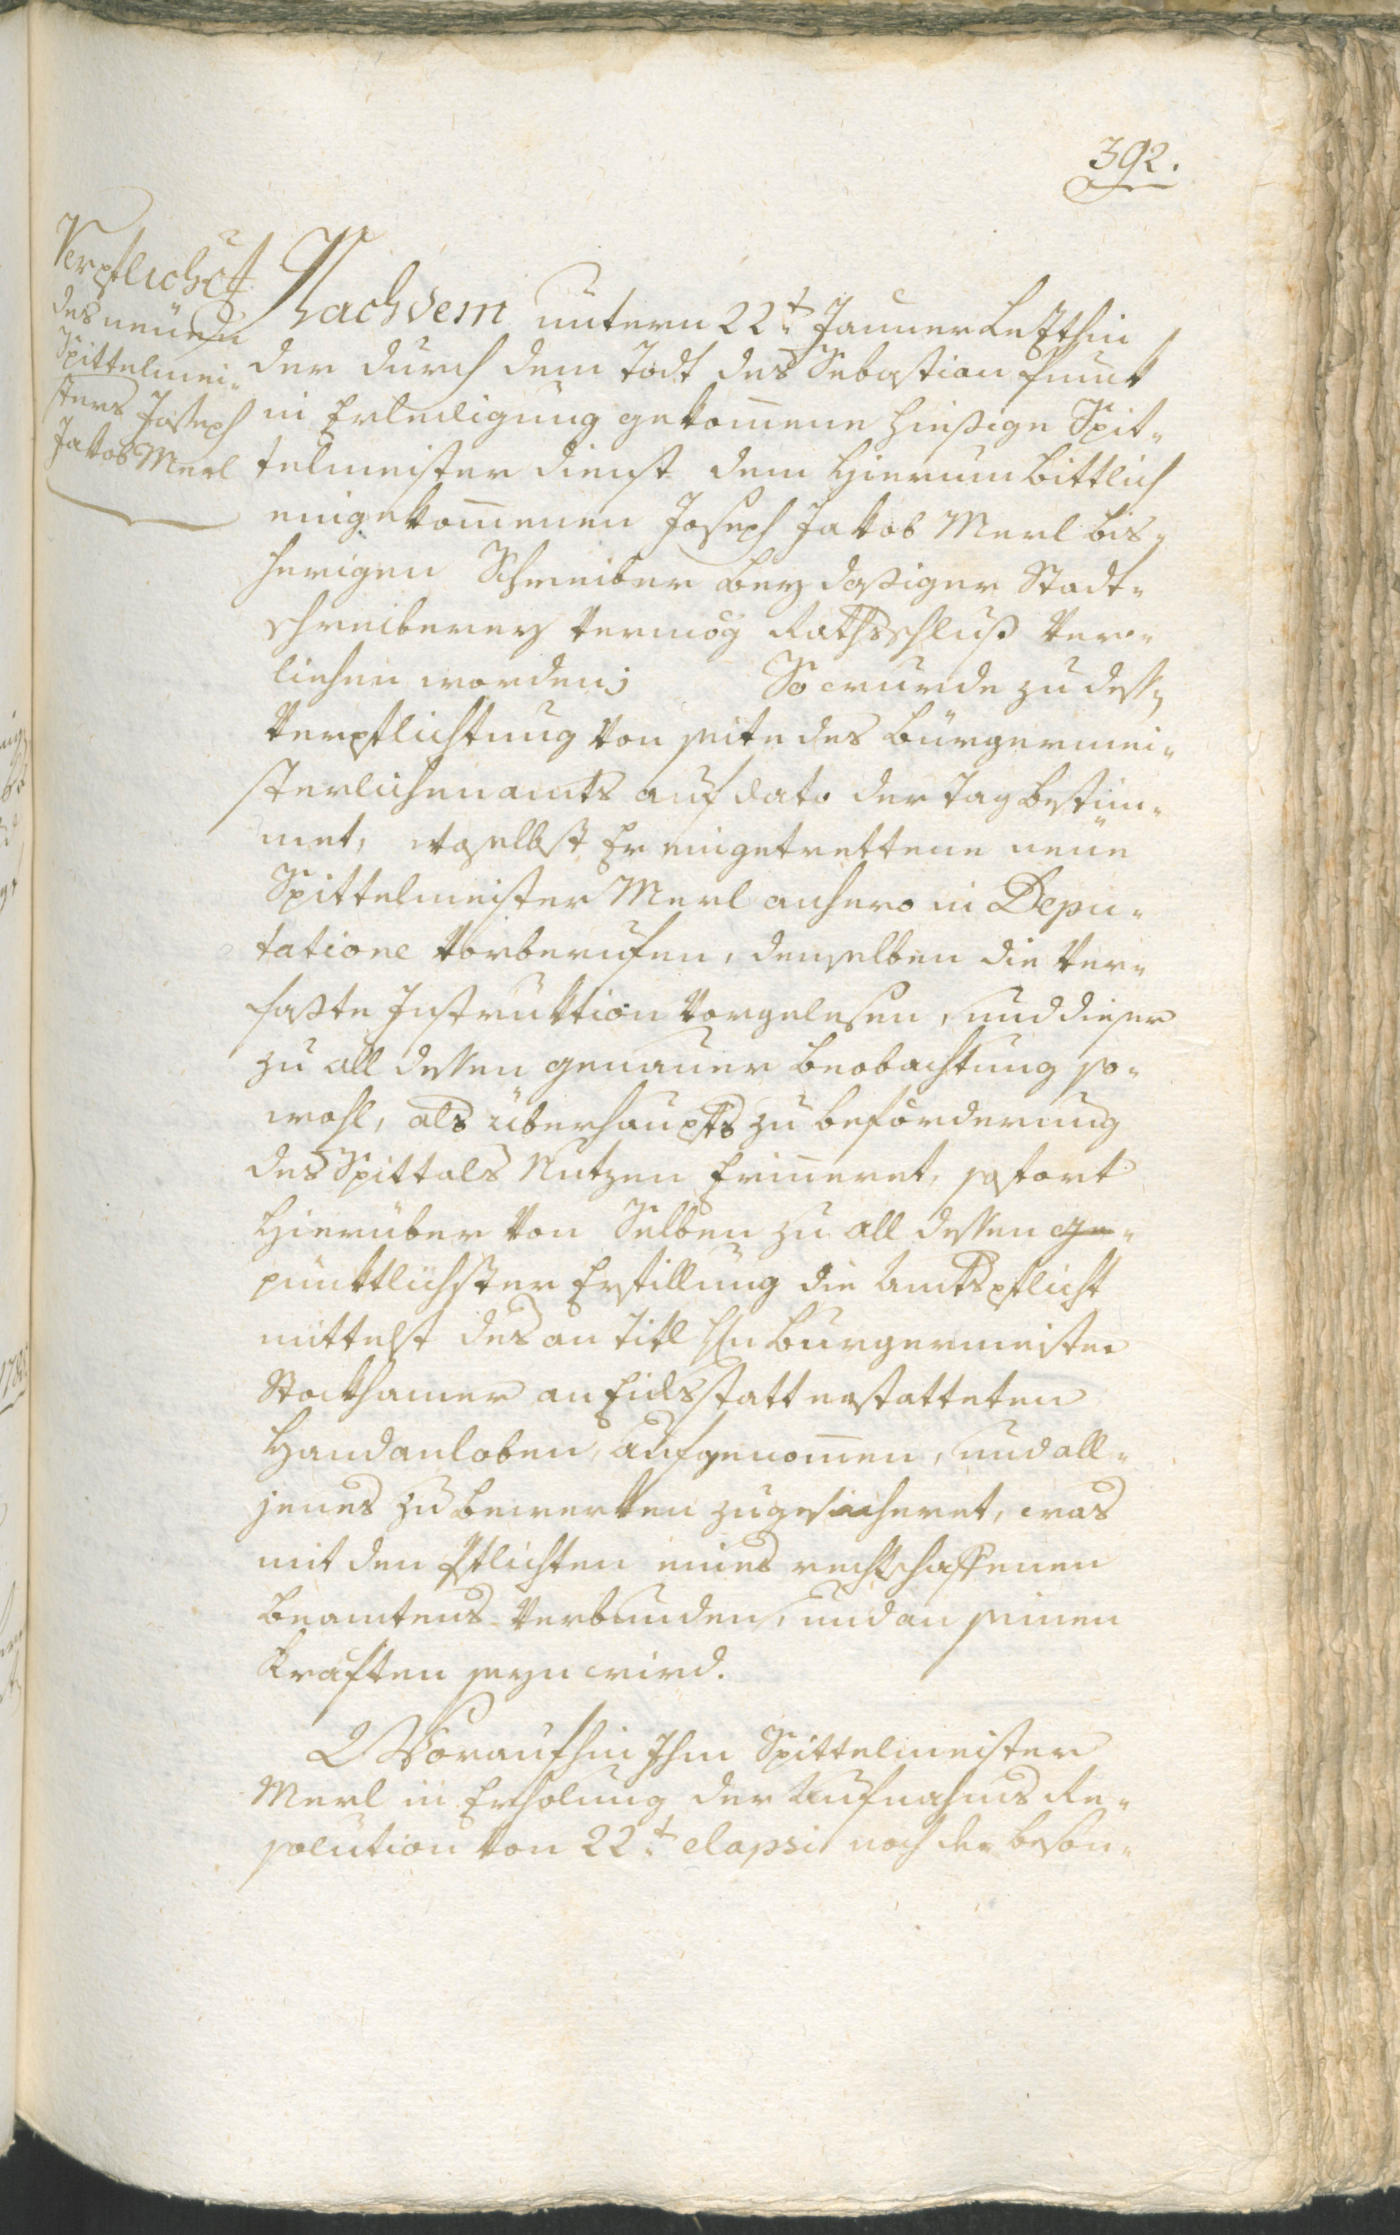 392.
Verpflicht
des neüen
Spittelmei-
sters Joseph
Jakob Merl
Nachdem untern 22t. Jänner letzthin
der durch dem Todt des Sebastian
in Erledigung gekom̅ene hiesige Spit-
telmeister dienst dem hierum bittlich
eingekom̅enen Joseph Jakob Merl bis-
herigen Schreiber bey dasiger Stadt-
schreiberey vermög Rathsschluß ver-
liehen worden; So wurde zu dessen
Verpflichtung von seite des Bürgermei-
sterlichen amts auf dato der Tag bestim-
met, woselbst Er eingetrettene neüe
Spittelmeister Merl anhero in Depu-
tatione vorberufen, denselben die ver-
faßte Instruktion vorgelesen, und dieser
zu all dessen genauer beobachtung so-
wohl, als überhaupts zu beförderung
des Spittals Nutzen Erin̅eret, sofort
hierüber von Selben zu all dessen ge-
pünktlichster Erfüllung die Amtspflicht
mittelst des an Titl Hn Burgermeister
Stockhamer an Eidsstatt erstatteten
Handanloben, aufgenom̅en, und all-
jenes zu bewerken zugesicheret, was
mit den Pflichten eines rechtschaffenen
Beamtens verbunden, und an seinen
Kräften seyn wird.
Woraufhin Ihm Spittelmeister
Merl in Erholung der Aufnahms Re-
solution von 22t. elapsi noch der beson-